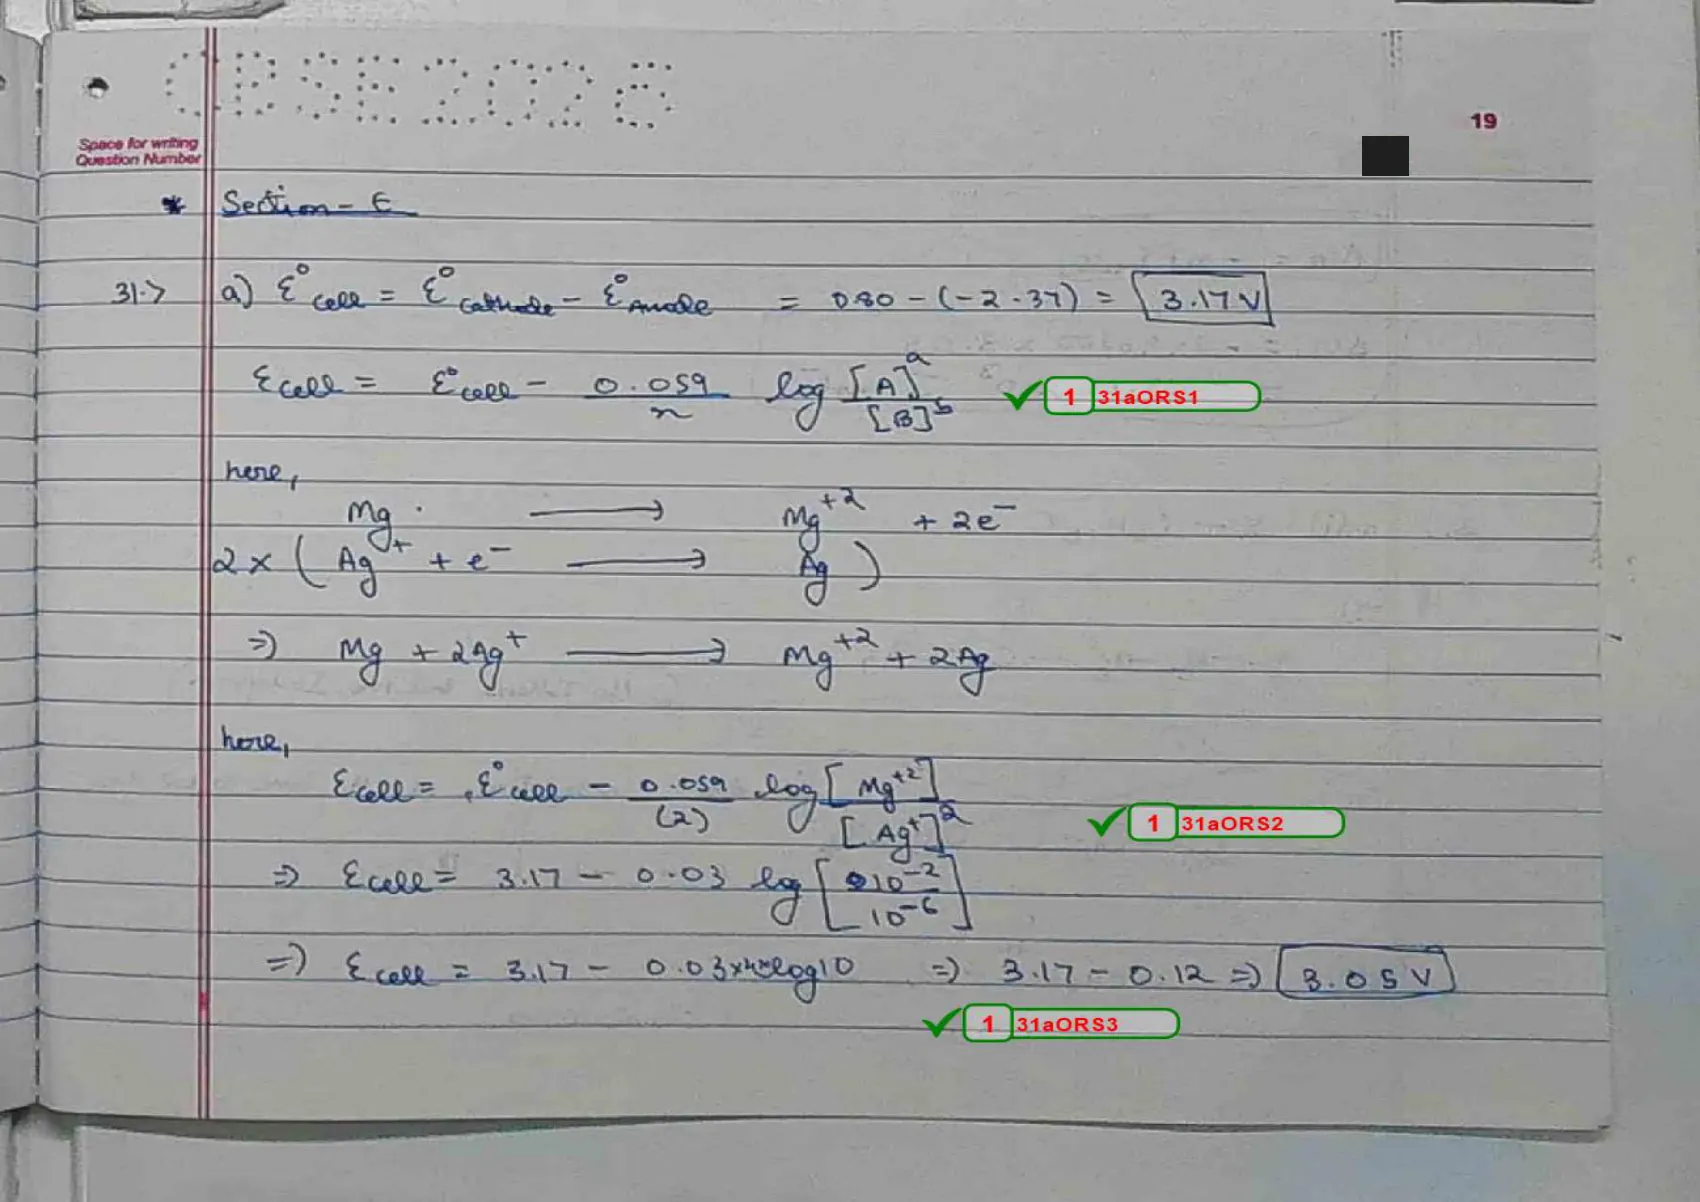 CBSE2026
19
Space for writing
Question Number
* Section - E
31.> a) ℰ°cell = ℰ°Cathode - ℰ°Anode = 0.80 - (-2.37) = 3.17 V
ℰcell = ℰ°cell - 0.059/n log [A]^a/[B]^b ✓ 1 31aORS1
here,
Mg ⟶ Mg⁺² + 2e⁻
2 × ( Ag⁺ + e⁻ ⟶ Ag )
⇒ Mg + 2Ag⁺ ⟶ Mg⁺² + 2Ag
here,
ℰcell = ℰ°cell - 0.059/(2) log [Mg⁺²]/[Ag⁺]² ✓ 1 31aORS2
⇒ ℰcell = 3.17 - 0.03 log [10⁻²/10⁻⁶]
⇒ ℰcell = 3.17 - 0.03×4 log10 ⇒ 3.17 - 0.12 ⇒ 3.05 V
✓ 1 31aORS3